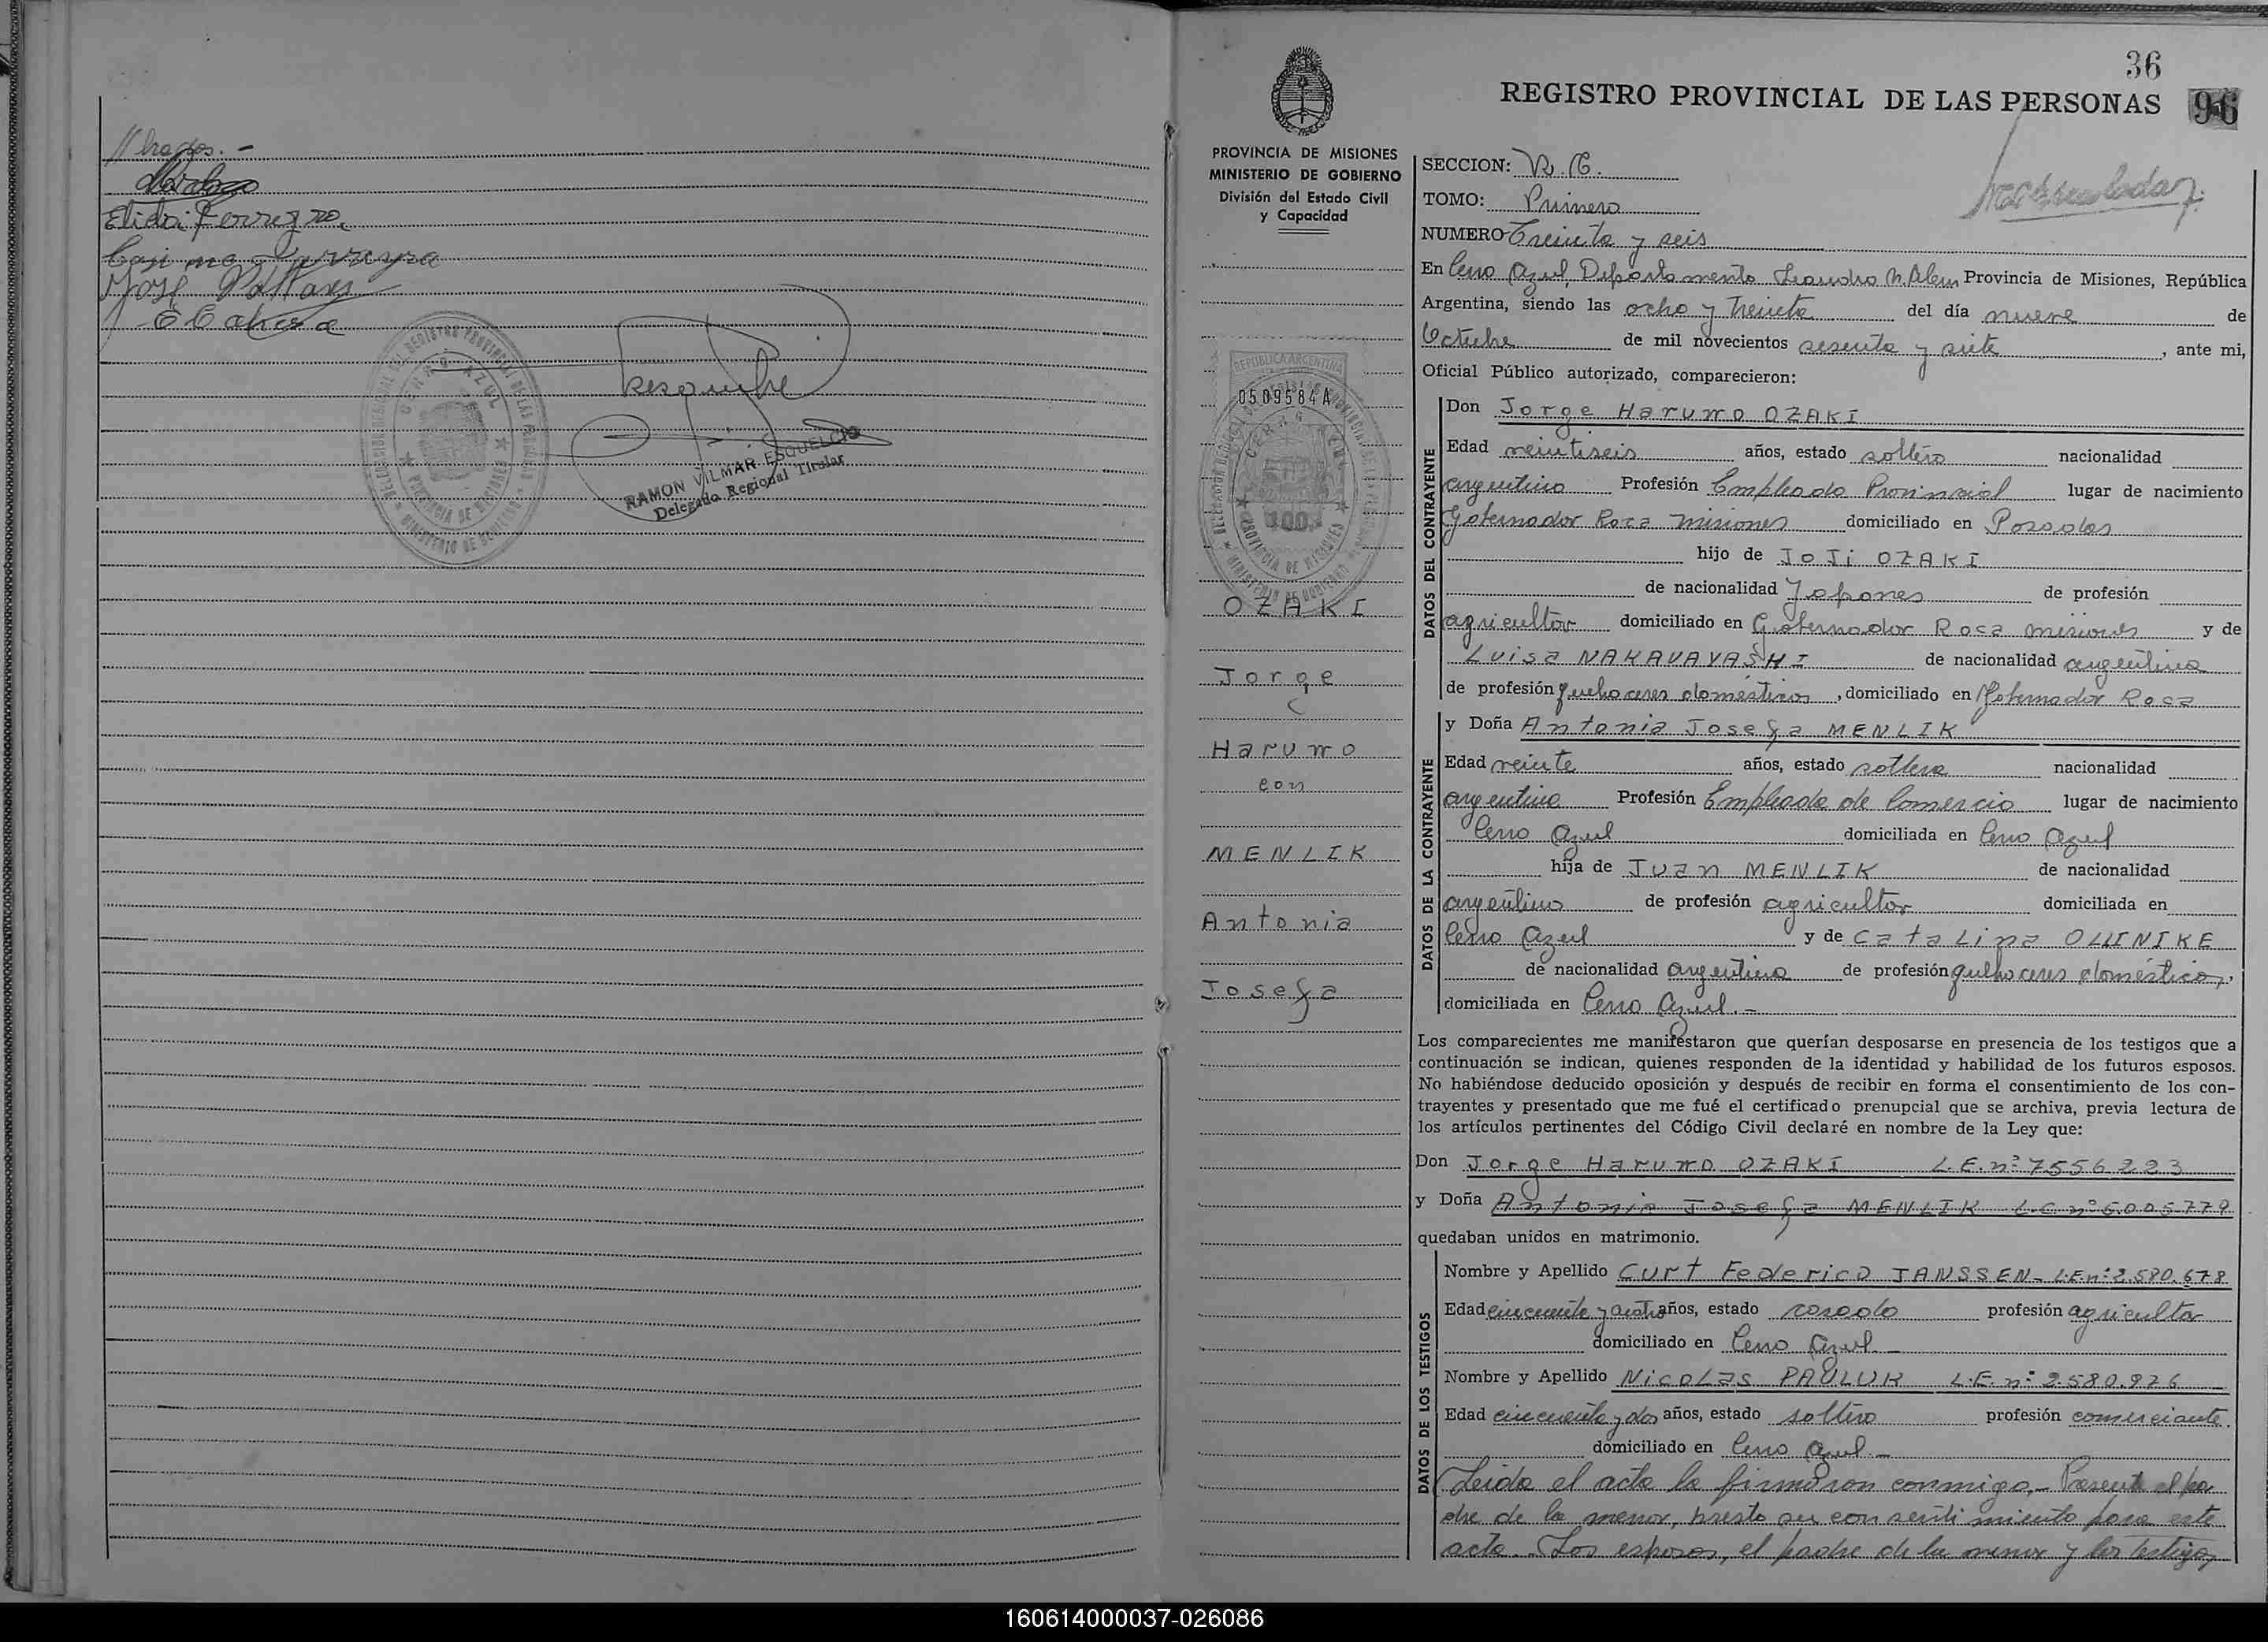 Elida Ferreyra
José
E Cabrera
REGISTRO PROVINCIAL DE LAS PERSONAS
CERRO AZUL
PROVINCIA DE MISIONES
MINISTERIO DE GOBIERNO
RAMON VILMAR ESQUELCIO
Delegado Regional Titular
36
REGISTRO PROVINCIAL DE LAS PERSONAS 96
PROVINCIA DE MISIONES
MINISTERIO DE GOBIERNO
División del Estado Civil
y Capacidad
REPUBLICA ARGENTINA
0509584A
OZAKI
Jorge
Harumo
con
MENLIK
Antonia
Josefa
SECCION:
TOMO: Primero
NUMERO Treinta y seis
En Cerro Azul, Departamento Leandro N. Alem Provincia de Misiones, República
Argentina, siendo las ocho y treinta del día nueve de
Octubre de mil novecientos sesenta y siete, ante mi,
Oficial Público autorizado, comparecieron:
DATOS DEL CONTRAYENTE
Don Jorge Harumo OZAKI
Edad veintiseis años, estado soltero nacionalidad
argentino Profesión Empleado Provincial lugar de nacimiento
Gobernador Roca Misiones domiciliado en Posadas
hijo de JoJi OZAKI
de nacionalidad Japones de profesión
agricultor domiciliado en Gobernador Roca Misiones y de
Luisa NAKAVAYASHI de nacionalidad argentina
de profesión quehaceres domésticos, domiciliado en Gobernador Roca
DATOS DE LA CONTRAYENTE
y Doña Antonia Josefa MENLIK
Edad veinte años, estado soltera nacionalidad
argentina Profesión Empleada de Comercio lugar de nacimiento
Cerro Azul domiciliada en Cerro Azul
hija de Juan MENLIK de nacionalidad
argentino de profesión agricultor domiciliada en
Cerro Azul y de Catalina
de nacionalidad argentina de profesión quehaceres domésticos,
domiciliada en Cerro Azul.-
Los comparecientes me manifestaron que querían desposarse en presencia de los testigos que a
continuación se indican, quienes responden de la identidad y habilidad de los futuros esposos.
No habiéndose deducido oposición y después de recibir en forma el consentimiento de los con-
trayentes y presentado que me fué el certificado prenupcial que se archiva, previa lectura de
los artículos pertinentes del Código Civil declaré en nombre de la Ley que:
Don Jorge Harumo OZAKI L.E.nº 7556223
y Doña Antonia Josefa MENLIK L.C nº 6.005.779
quedaban unidos en matrimonio.
DATOS DE LOS TESTIGOS
Nombre y Apellido Curt Federico JANSSEN- L.E.nº 2.580.678
Edad cincuenta y cuatro años, estado casado profesión agricultor
domiciliado en Cerro Azul
Nombre y Apellido Nicolas PAULUK L.E. nº 2.580.826
Edad cincuenta y dos años, estado soltero profesión comerciante.
domiciliado en Cerro Azul.-
Leida el acta la firmaron conmigo.- Presente el pa
dre de la menor, presto su consentimiento para este
acto. Los esposos, el padre de la menor y los testigos,
160614000037-026086